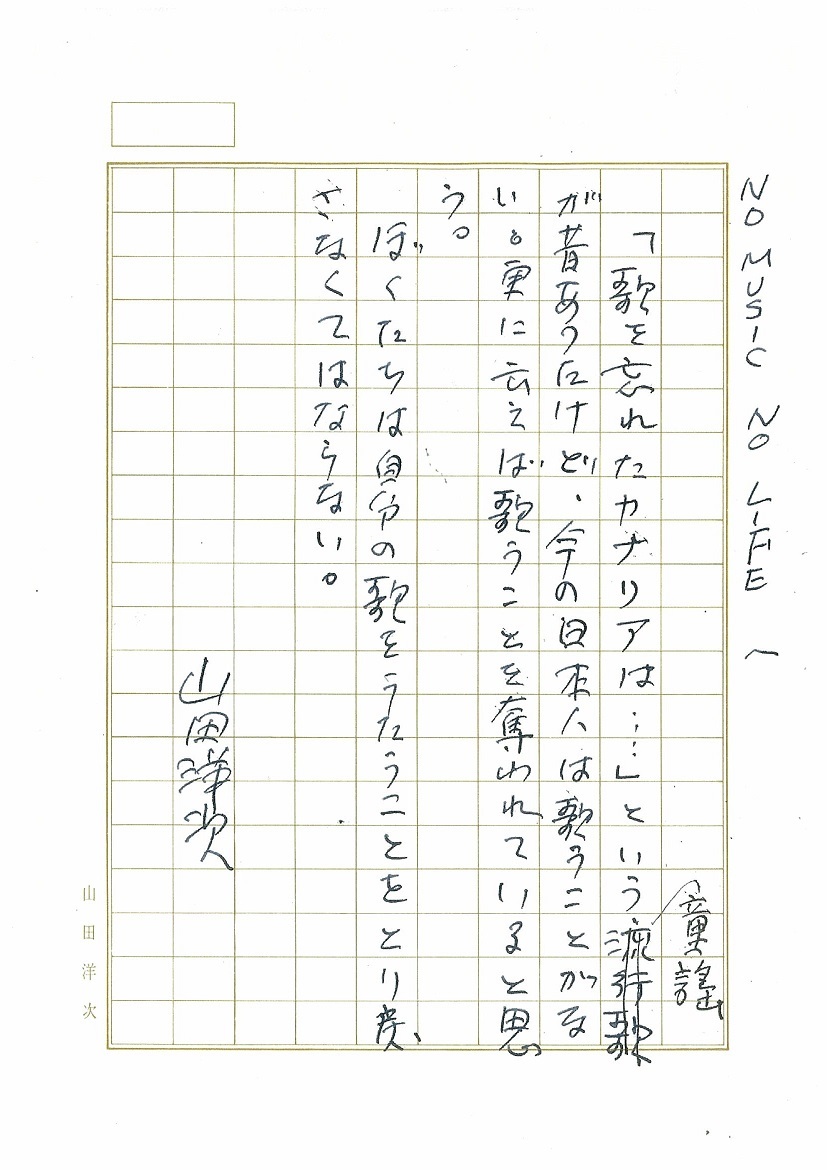 NO MUSIC NO LIFE 〜
童謡
「歌を忘れたカナリアは……」という流行歌
が昔あったけど、今の日本人は歌うことがな
い。更に云えば歌うことを奪われていると思
う。
ぼくたちは自分の歌をうたうことをとり戻
さなくてはならない。
山田洋次
山田洋次